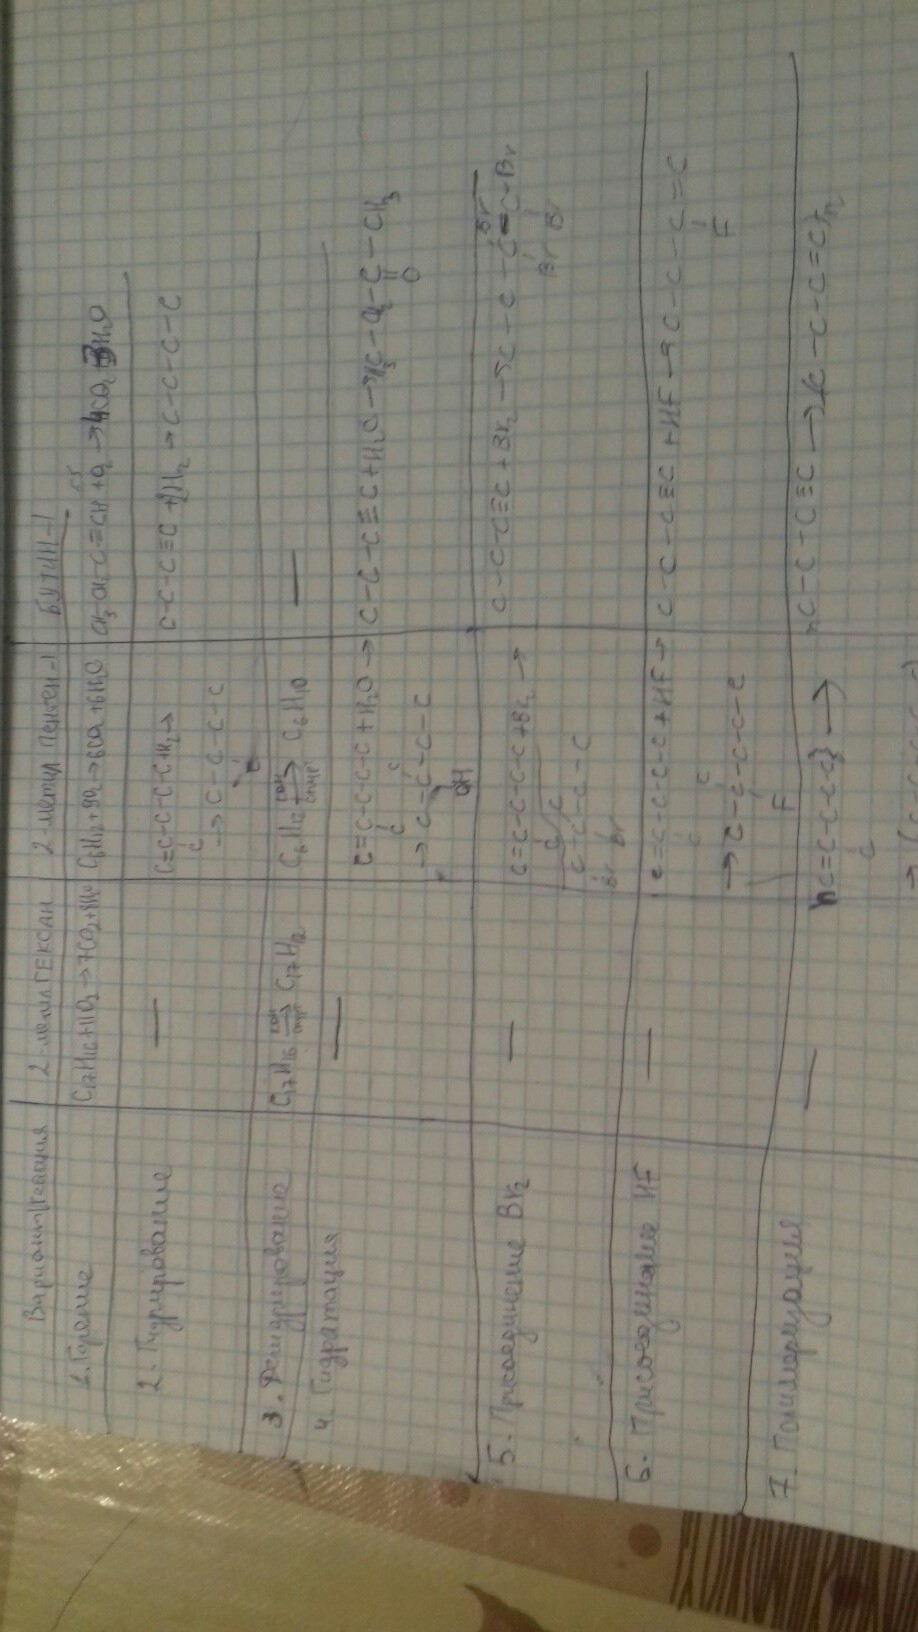 Вариант/реакция 2-метилГЕКСАН 2-метил пентен-1 БУТИН-1
1. Горение C₇H₁₆+11O₂→7CO₂+8H₂O C₆H₁₂+9O₂→6CO₂+6H₂O CH₃-CH₂-C≡CH+O₂→4CO₂+3H₂O
2. Гидрирование — C=C-C-C-C+H₂→ C-C-C≡C+2H₂→C-C-C-C
C
→C-C-C-C-C
C
3. Дегидрирование C₇H₁₆ → C₇H₁₂ C₆H₁₂ → C₆H₁₀ —
4. Гидратация — C=C-C-C-C+H₂O→ C-C-C≡C+H₂O→H₃C-CH₂-C-CH₃
C O
C
→C-C-C-C-C
OH
5. Присоединение Br₂ — C=C-C-C-C+Br₂→ C-C-C≡C+Br₂→C-C-C-C-Br
C Br Br
C
C-C-C-C-C
Br Br
6. Присоединение HF — C=C-C-C-C+HF→ C-C-C≡C+HF→C-C-C=C
C F
C
→C-C-C-C-C
F
7. Полимеризация — nC=C-C-C-C → nC-C-C≡C→(C-C-C=C)n
C